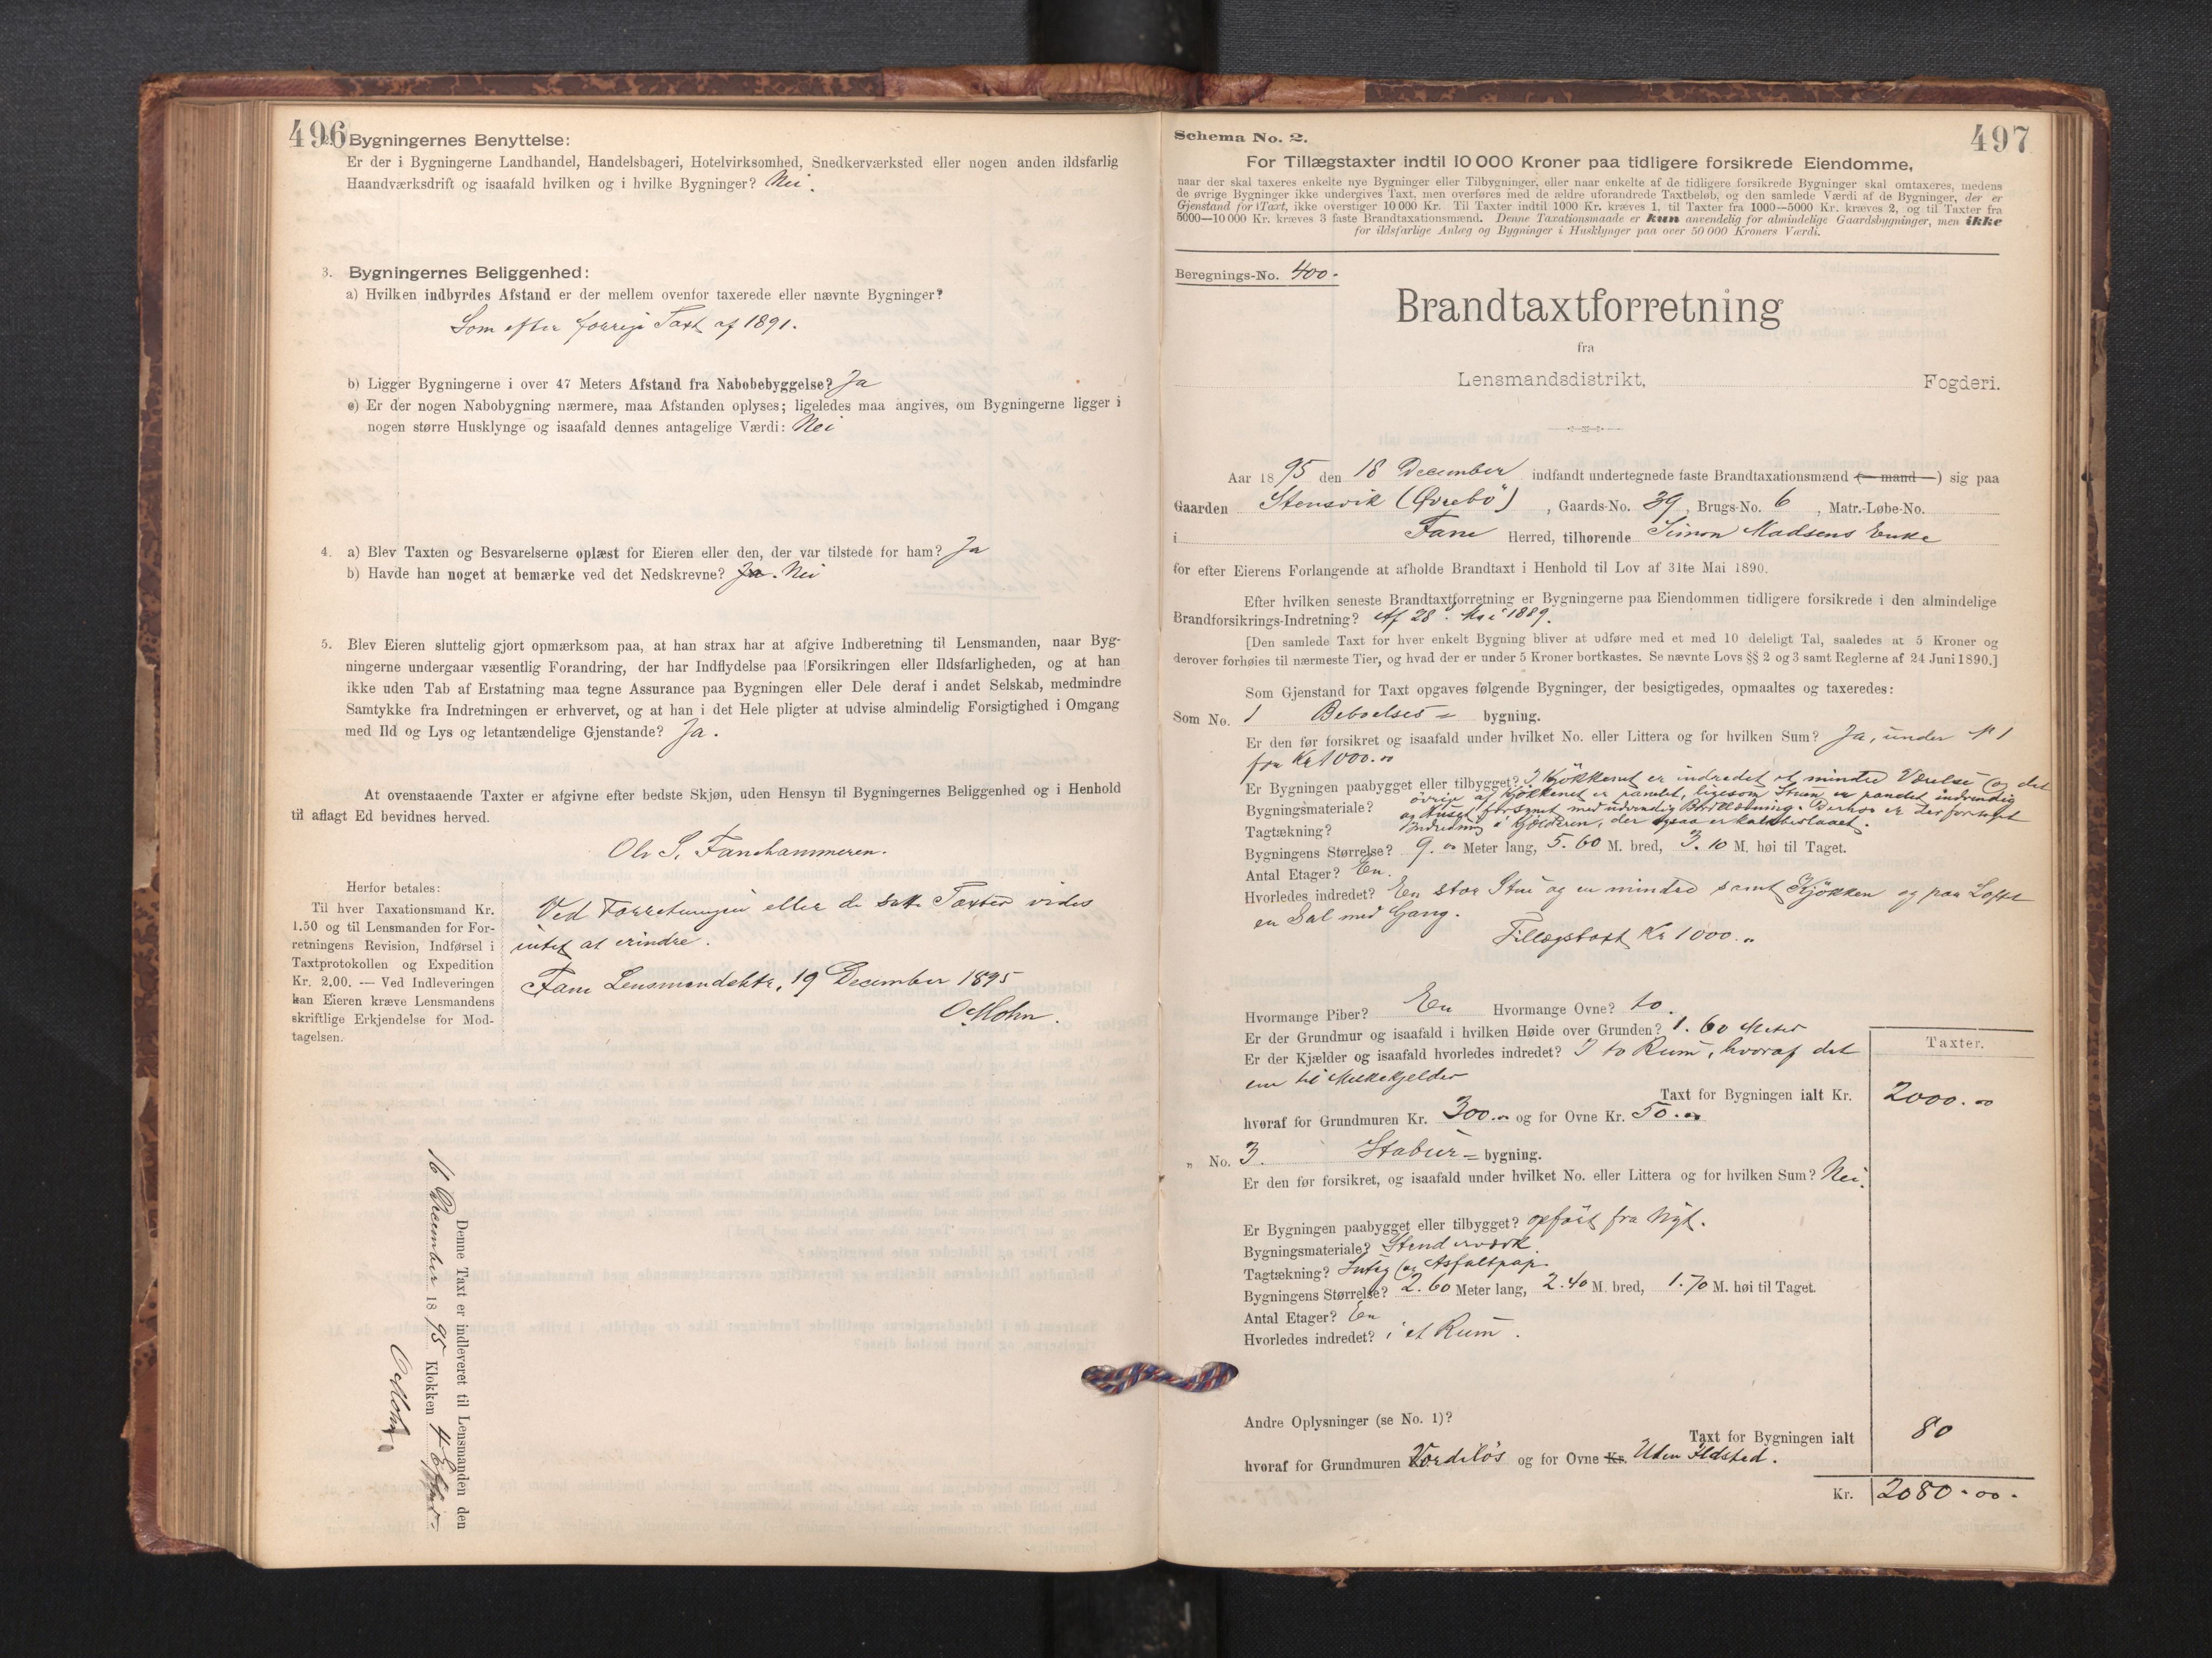 496
2. Bygningernes Benyttelse:
Er der i Bygningerne Landhandel, Handelsbageri, Hotelvirksomhed, Snedkerværksted eller nogen anden ildsfarlig
Haandværksdrift og isaafald hvilken og i hvilke Bygninger? Nei.
3. Bygningernes Beliggenhed:
a) Hvilken indbyrdes Afstand er der mellem ovenfor taxerede eller nævnte Bygninger?
Som efter forrige Taxt af 1891.
b) Ligger Bygningerne i over 47 Meters Afstand fra Nabobebyggelse? Ja
c) Er der nogen Nabobygning nærmere, maa Afstanden oplyses; ligeledes maa angives, om Bygningerne ligger i
nogen større Husklynge og isaafald dennes antagelige Værdi: Nei
4. a) Blev Taxten og Besvarelserne oplæst for Eieren eller den, der var tilstede for ham? Ja
b) Havde han noget at bemærke ved det Nedskrevne? Ja. Nei
5. Blev Eieren sluttelig gjort opmærksom paa, at han strax har at afgive Indberetning til Lensmanden, naar Byg-
ningerne undergaar væsentlig Forandring, der har Indflydelse paa Forsikringen eller Ildsfarligheden, og at han
ikke uden Tab af Erstatning maa tegne Assurance paa Bygningen eller Dele deraf i andet Selskab, medmindre
Samtykke fra Indretningen er erhvervet, og at han i det Hele pligter at udvise almindelig Forsigtighed i Omgang
med Ild og Lys og letantændelige Gjenstande? Ja.
At ovenstaaende Taxter er afgivne efter bedste Skjøn, uden Hensyn til Bygningernes Beliggenhed og i Henhold
til aflagt Ed bevidnes herved.
Ole S. Fanehammeren.
Herfor betales:
Til hver Taxationsmand Kr.
1.50 og til Lensmanden for For-
retningens Revision, Indførsel i
Taxtprotokollen og Expedition
Kr. 2.00. — Ved Indleveringen
kan Eieren kræve Lensmandens
skriftlige Erkjendelse for Mod-
tagelsen.
Ved Forretningen eller de satte Taxter vides
intet at erindre.
Fane Lensmandsktr, 19 December 1895
O. Mohn.
Denne Taxt er indleveret til Lensmanden den
16 December 1895 Klokken 4 Efterm.
O. Mohn
497
Schema No. 2.
For Tillægstaxter indtil 10 000 Kroner paa tidligere forsikrede Eiendomme,
naar der skal taxeres enkelte nye Bygninger eller Tilbygninger, eller naar enkelte af de tidligere forsikrede Bygninger skal omtaxeres, medens
de øvrige Bygninger ikke undergives Taxt, men overføres med de ældre uforandrede Taxtbeløb, og den samlede Værdi af de Bygninger, der er
Gjenstand for Taxt, ikke overstiger 10 000 Kr. Til Taxter indtil 1000 Kr. kræves 1, til Taxter fra 1000—5000 Kr. kræves 2, og til Taxter fra
5000—10 000 Kr. kræves 3 faste Brandtaxationsmænd. Denne Taxationsmaade er kun anvendelig for almindelige Gaardsbygninger, men ikke
for ildsfarlige Anlæg og Bygninger i Husklynger paa over 50 000 Kroners Værdi.
Beregnings-No. 400.
Brandtaxtforretning
fra
Lensmandsdistrikt, Fogderi.
Aar 1895 den 18 December indfandt undertegnede faste Brandtaxationsmænd (— mand —) sig paa
Gaarden Stensvik (Øvrebö), Gaards-No. 39, Brugs-No. 6, Matr.-Løbe-No.
i Fane Herred, tilhørende Simon Madsens Enke
for efter Eierens Forlangende at afholde Brandtaxt i Henhold til Lov af 31te Mai 1890.
Efter hvilken seneste Brandtaxtforretning er Bygningerne paa Eiendommen tidligere forsikrede i den almindelige
Brandforsikrings-Indretning? Af 28. Mai 1889.
[Den samlede Taxt for hver enkelt Bygning bliver at udføre med et med 10 deleligt Tal, saaledes at 5 Kroner og
derover forhøies til nærmeste Tier, og hvad der er under 5 Kroner bortkastes. Se nævnte Lovs §§ 2 og 3 samt Reglerne af 24 Juni 1890.]
Som Gjenstand for Taxt opgaves følgende Bygninger, der besigtigedes, opmaaltes og taxeredes:
Som No. 1 Beboelses = bygning.
Er den før forsikret og isaafald under hvilket No. eller Littera og for hvilken Sum? Ja, under № 1
for Kr 1000.00
Er Bygningen paabygget eller tilbygget? I Kjökkenet er indredet et mindre Værelse og det
Bygningsmateriale? övrige af Kjökkenet er panelet, ligesom Stuen er panelet indvendig
Tagtækning? og Huset forsynet med udvendig Bordklædning. Derhos er der foretaget
Indredning i Kjælderen, der ogsaa er kalkbeslaaet.
Bygningens Størrelse? 9.00 Meter lang, 5.60 M. bred, 3.10 M. høi til Taget.
Antal Etager? En.
Hvorledes indredet? En stor Stue og en mindre samt Kjökken og paa Loftet
en Sal med Gang.
Tillægstaxt Kr 1000.„
Hvormange Piber? En Hvormange Ovne? to.
Er der Grundmur og isaafald i hvilken Høide over Grunden? 1.60 Meter
Er der Kjælder og isaafald hvorledes indredet? I to Rum, hvoraf det
ene til Melkekjelder
Taxter.
Taxt for Bygningen ialt Kr. 2000.00
hvoraf for Grundmuren Kr. 300.00 og for Ovne Kr. 50.00
„ No. 3. Stabur = bygning.
Er den før forsikret, og isaafald under hvilket No. eller Littera og for hvilken Sum? Nei.
Er Bygningen paabygget eller tilbygget? opfört fra Nyt.
Bygningsmateriale? Stenderværk.
Tagtækning? Sutag og Asfaltpap.
Bygningens Størrelse? 2.60 Meter lang, 2.40 M. bred, 1.70 M. høi til Taget.
Antal Etager? En
Hvorledes indredet? i et Rum.
Andre Oplysninger (se No. 1)?
Taxt for Bygningen ialt 80
hvoraf for Grundmuren Værdilös og for Ovne Kr. Uden Ildsted.
Kr. 2080.00.